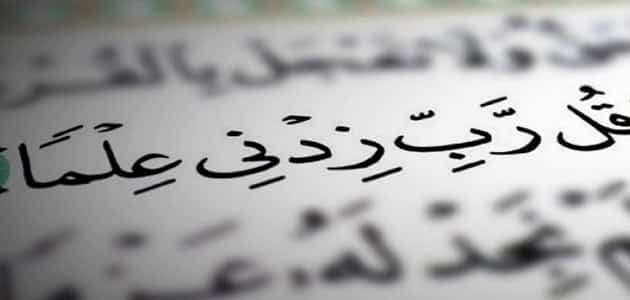 وَلَا تَعْجَلْ بِالْقُرْ
قُل رَّبِّ زِدْنِي عِلْمًا
نَجِدْ لَهُ عَزْمًا